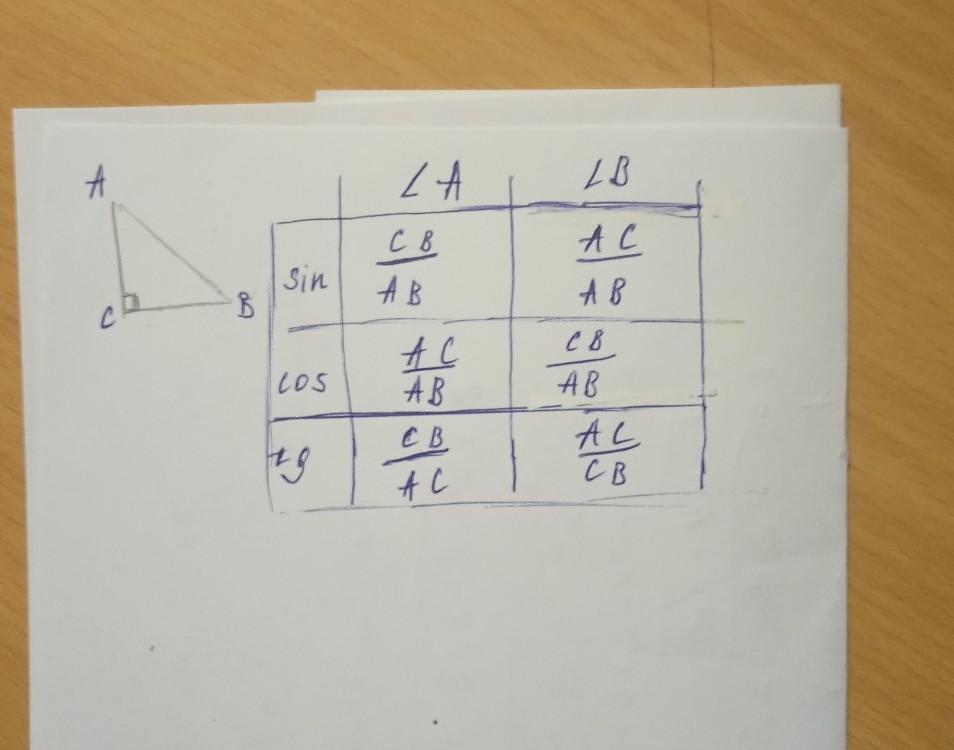 A
C
B
∠A ∠B
sin CB/AB AC/AB
cos AC/AB CB/AB
tg CB/AC AC/CB